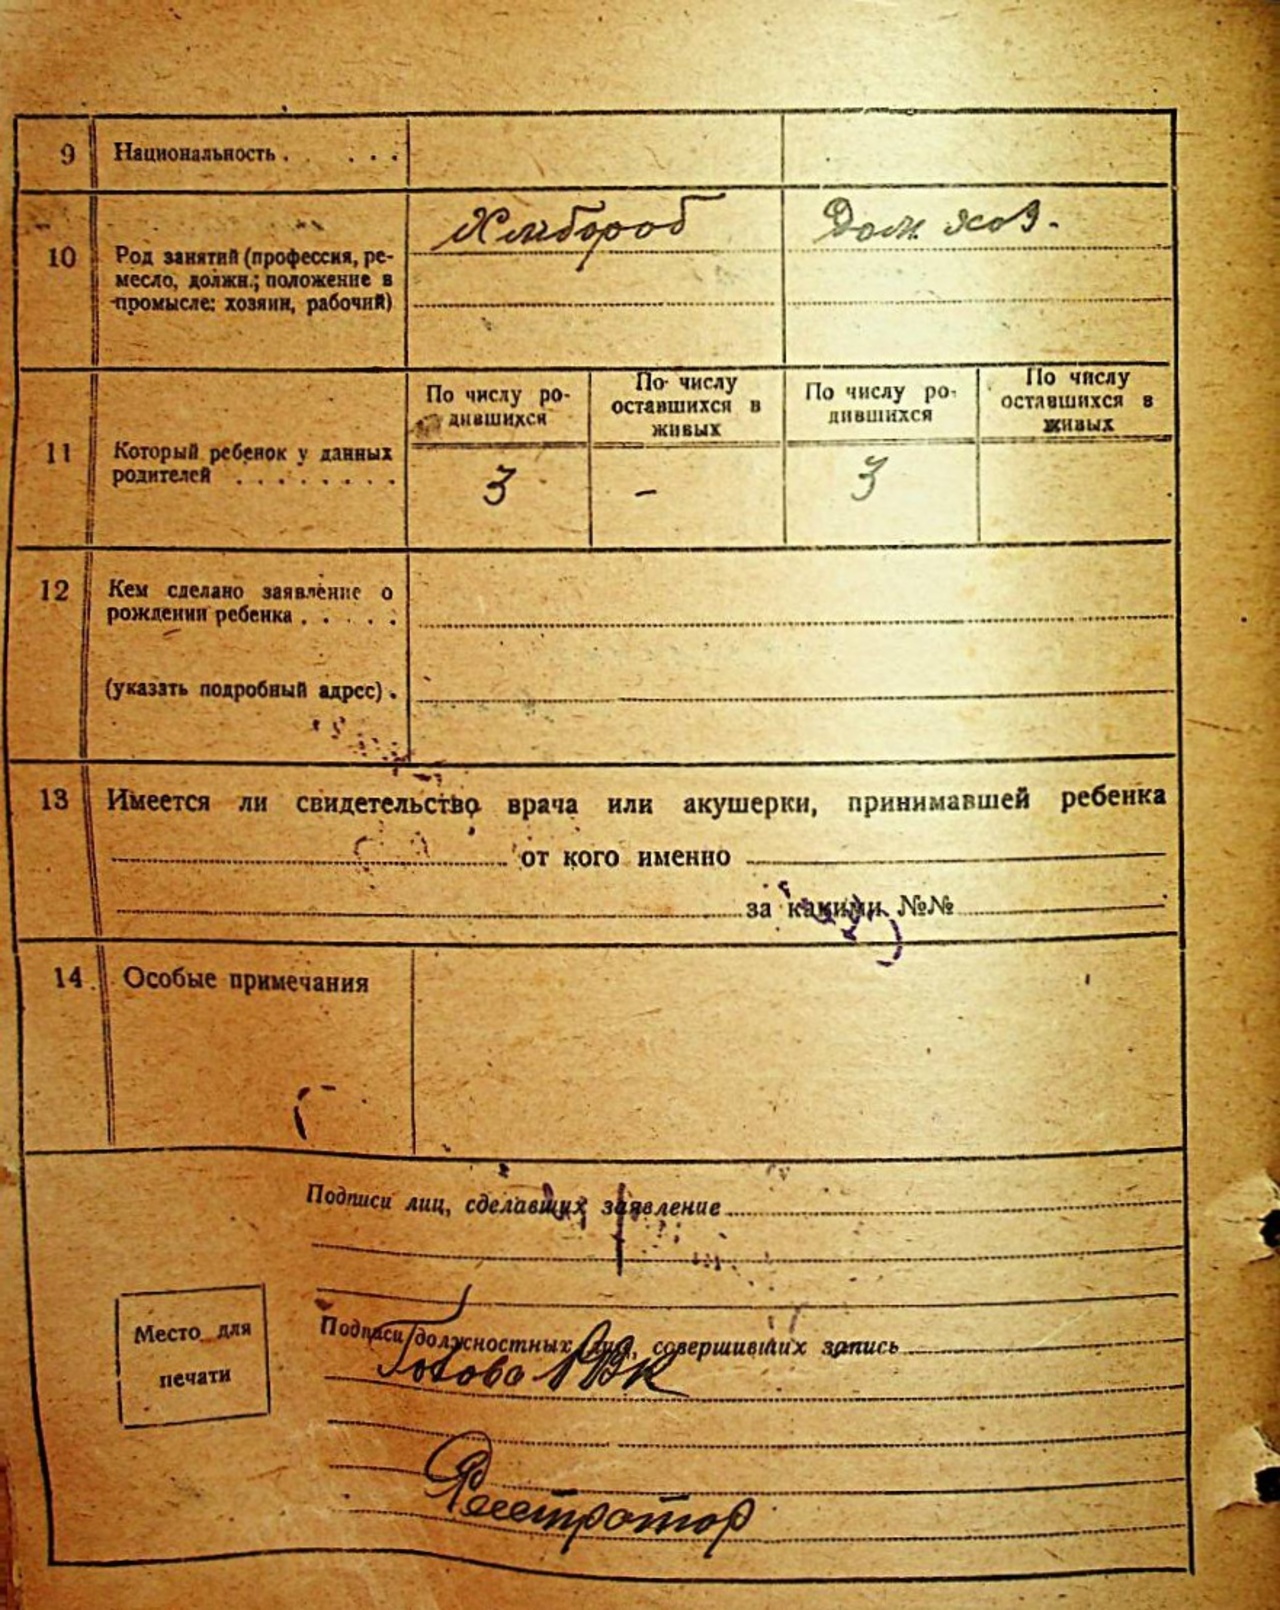 9 Национальность . . . .
10 Род занятий (профессия, ре-
месло, должн.; положение в
промысле: хозяин, рабочий)
Хлибороб Дом хоз.
11 Который ребенок у данных
родителей . . . . . . . .
По числу ро-
дившихся
По числу
оставшихся в
живых
По числу ро-
дившихся
По числу
оставшихся в
живых
3 - 3
12 Кем сделано заявление о
рождении ребенка . . . . .
(указать подробный адрес) .
13 Имеется ли свидетельство врача или акушерки, принимавшей ребенка
от кого именно
за какими №№
14. Особые примечания
Подписи лиц, сделавших заявление
Место для
печати
Подписи должностных лиц, совершивших запись
Голова РВК
Реестратор